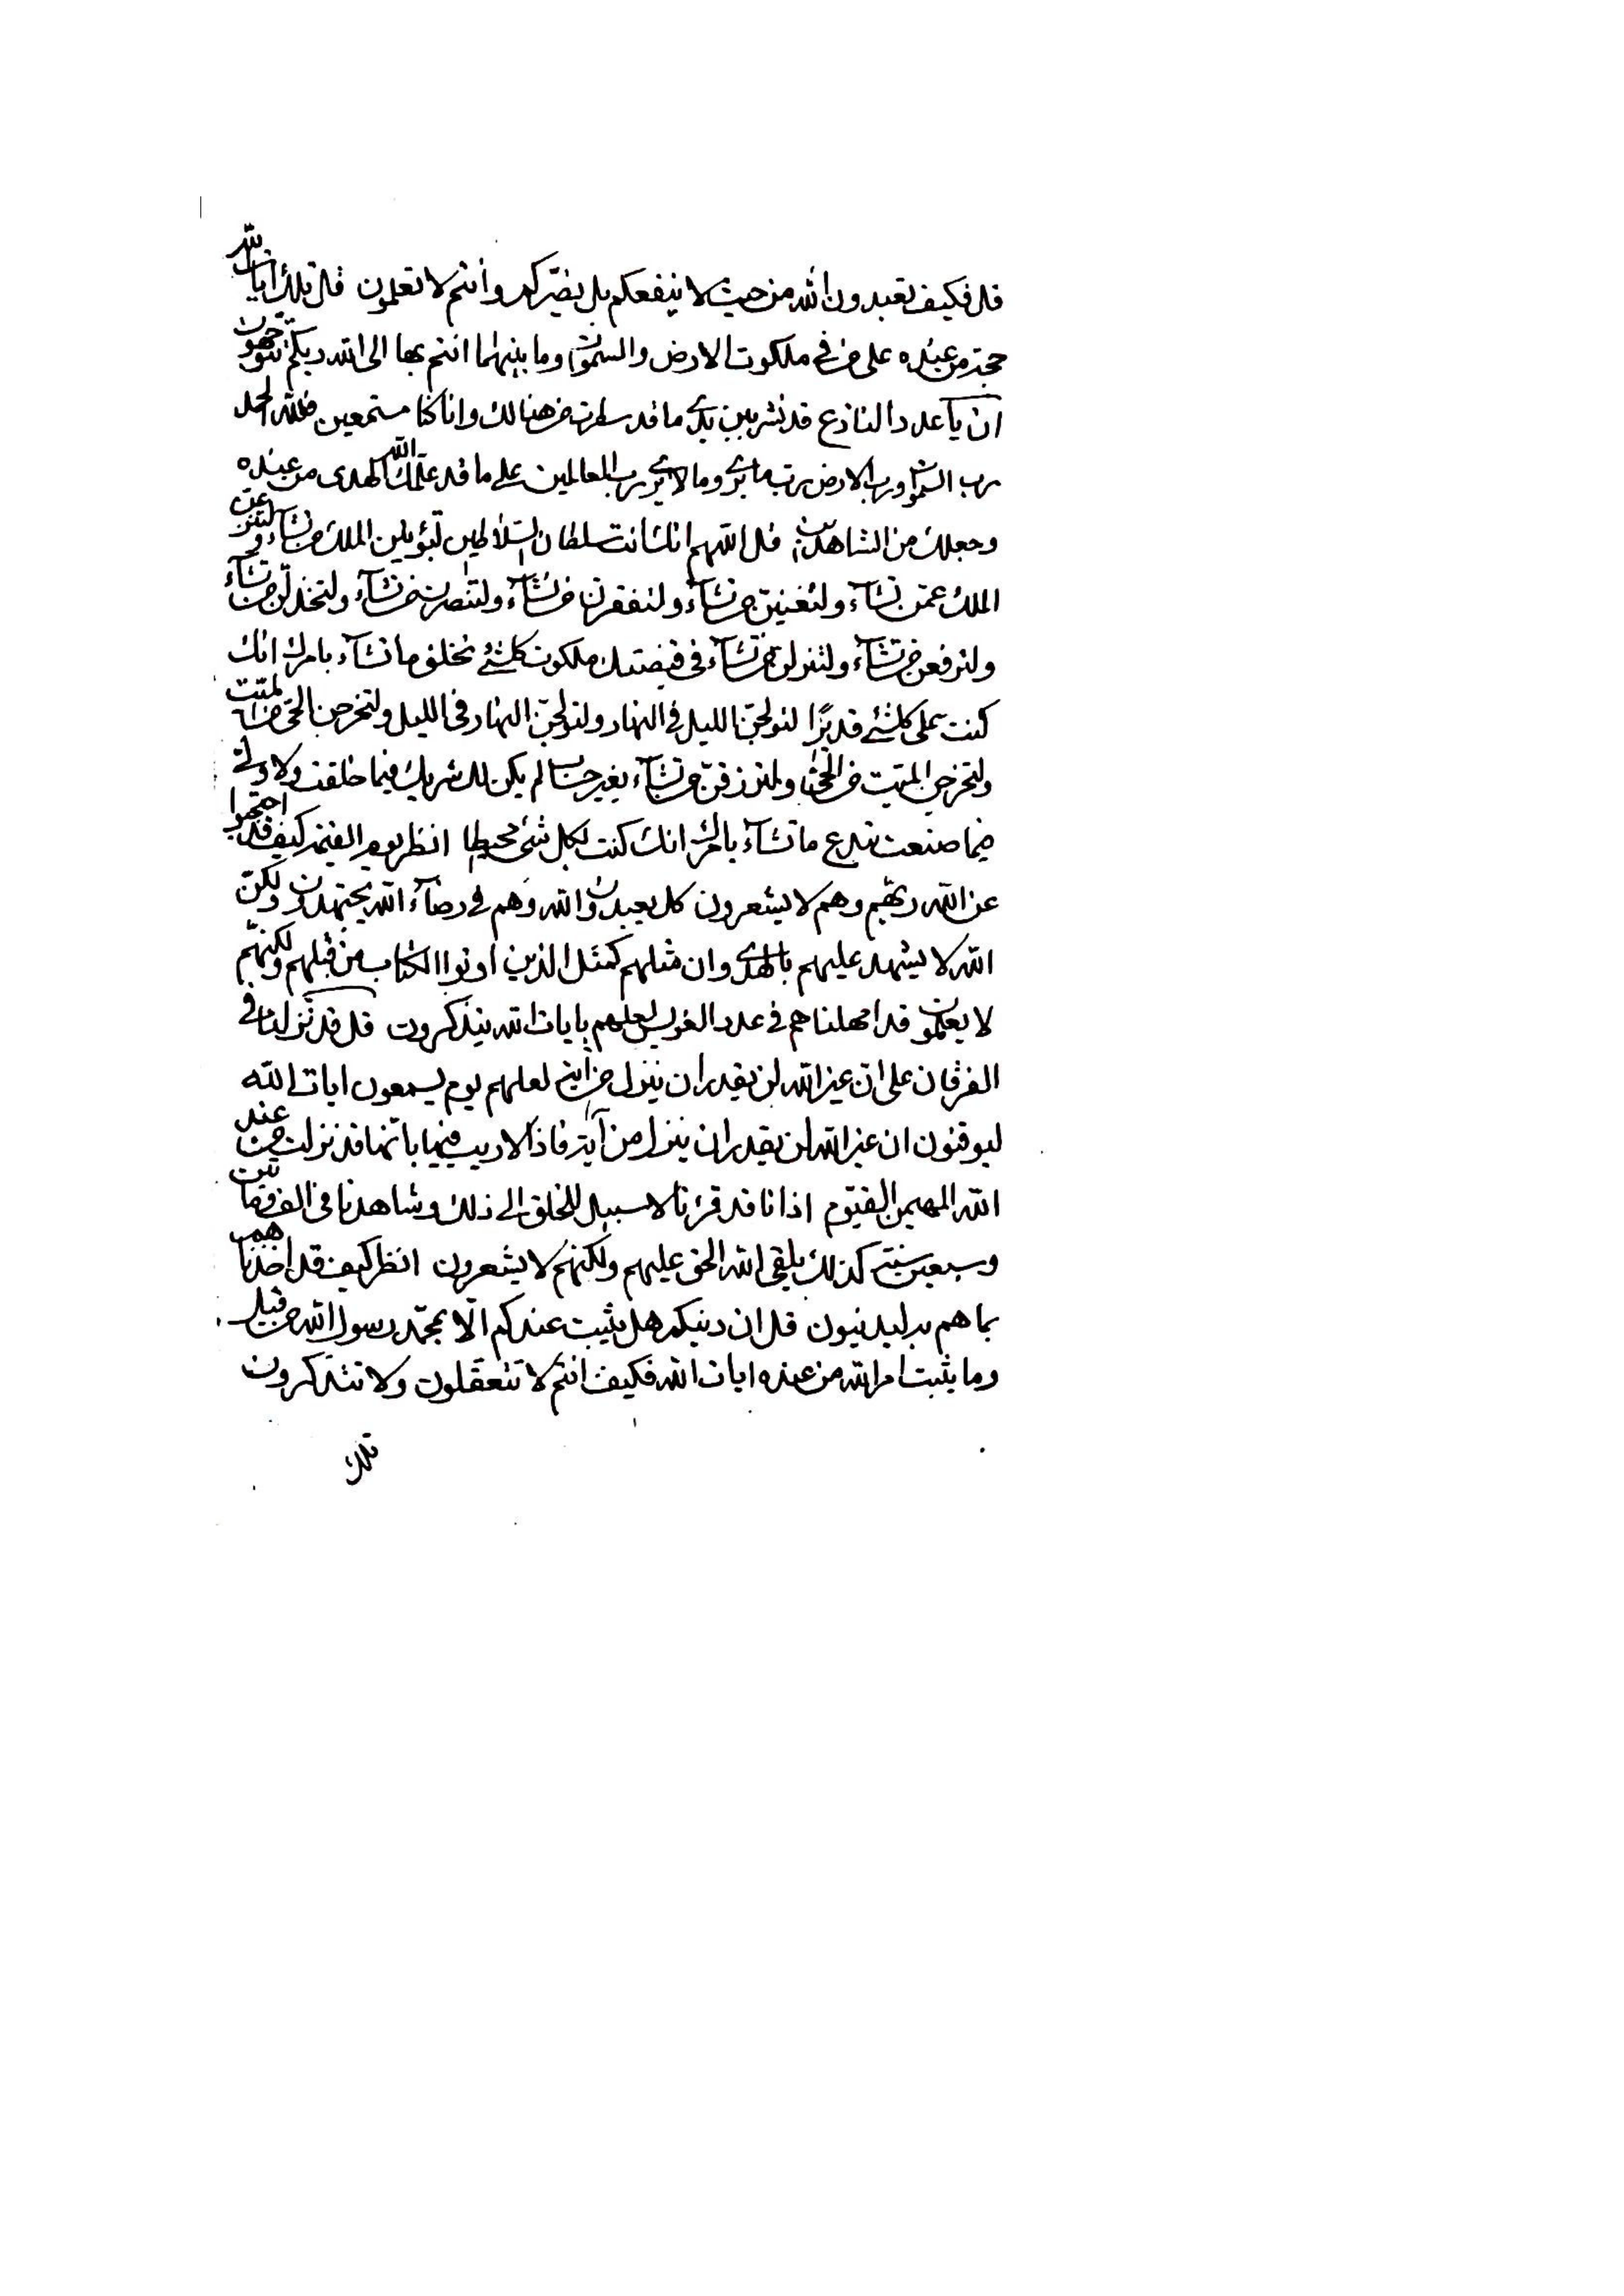 قل فكيف تعبدون الله من حيث لا ينفعكم بل يضركم وأنتم لا تعلمون قل تلك ايات الله
حجة من عنده على من في ملكوت الارض والسموات وما بينهما انتم بها الى الله ربكم تتوجهون
ان يا عدد قد نشر بين يدي ما قد سطرت من هنالك وانا كنا مستمعين فلله الحمد
رب السموات ورب الارض رب ما يرى وما لا يرى رب العالمين على ما قد علمك الله الهدى من عنده
وجعلك من الشاهدين قل اللهم انك انت سلطان السلاطين لتؤتين الملك من تشآء ولتنزعن
الملك عمن تشآء ولتغنين من تشآء ولتفقرن من تشآء ولتنصرن من تشآء ولتخذلن من تشآء
ولترفعن من تشآء ولتنزلن من تشآء في قبضتك ملكوت كلشئ تخلق ما تشآء بامرك انك
كنت على كلشئ قديرًا لتولجن الليل في النهار ولتولجن النهار في الليل ولتخرجن الحي من الميت
ولتخرجن الميت من الحي ولترزقن من تشآء بغير حساب لم يكن لك شريك فيما خلقت ولا ولي
فيما صنعت تبدع ما تشآء بامرك انك كنت بكل شئ محيطا انظر يوم القيمة كيف قد احتجبوا
عن الله ربهم وهم لا يشعرون كل يعبدون الله وهم في رضآء الله يجتهدون ولكن
الله لا يشهد عليهم بالهدى وان مثلهم كمثل الذين اوتوا الكتاب من قبلهم ولكنهم
لا يعلمون قد امهلناهم في عدد الغرس لعلهم بايات الله يتذكرون قل قد نزلنا في
الفرقان على ان غير الله لن يقدر ان ينزل من اية لعلهم يوم يسمعون ايات الله
ليوقنون ان غير الله لن يقدر ان ينزل من آية فاذا لا ريب فيها بانها قد نزلت من عند
الله المهيمن القيوم اذ انا قد قرئنا لا سبيل للخلق الى ذلك وشاهدنا في الف ومأتين
وسبعين سنة كذلك يلقي الله الحق عليهم ولكنهم لا يشعرون انظر كيف قد اخذناهم
بما هم به ليدينون قل ان دينكم هل يثبت عندكم الا بمحمد رسول الله من قبل
وما يثبت امر الله من عنده ايات الله فكيف انتم لا تتعقلون ولا تتذكرون
تلك